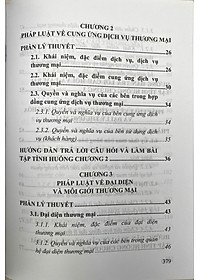 CHƯƠNG 2
PHÁP LUẬT VỀ CUNG ỨNG DỊCH VỤ THƯƠNG MẠI
PHẦN LÝ THUYẾT 26
2.1. Khái niệm, đặc điểm dịch vụ, dịch vụ
thương mại 26
2.2. Khái niệm, đặc điểm cung ứng dịch vụ
thương mại 30
2.3. Quyền và nghĩa vụ của các bên trong hợp
đồng cung ứng dịch vụ thương mại 34
2.3.1. Quyền và nghĩa vụ của bên cung ứng dịch
vụ thương mại
2.3.2. Quyền và nghĩa vụ của bên sử dụng dịch
vụ (khách hàng)
HƯỚNG DẪN TRẢ LỜI CÂU HỎI VÀ LÀM BÀI
TẬP TÌNH HUỐNG CHƯƠNG 2 36
CHƯƠNG 3
PHÁP LUẬT VỀ ĐẠI DIỆN
VÀ MÔI GIỚI THƯƠNG MẠI
PHẦN LÝ THUYẾT 43
3.1. Đại diện thương mại 43
3.1.1. Khái niệm, đặc điểm của đại diện
thương mại
3.1.2. Quyền và nghĩa vụ của các bên trong quan
hệ đại diện thương mại
379